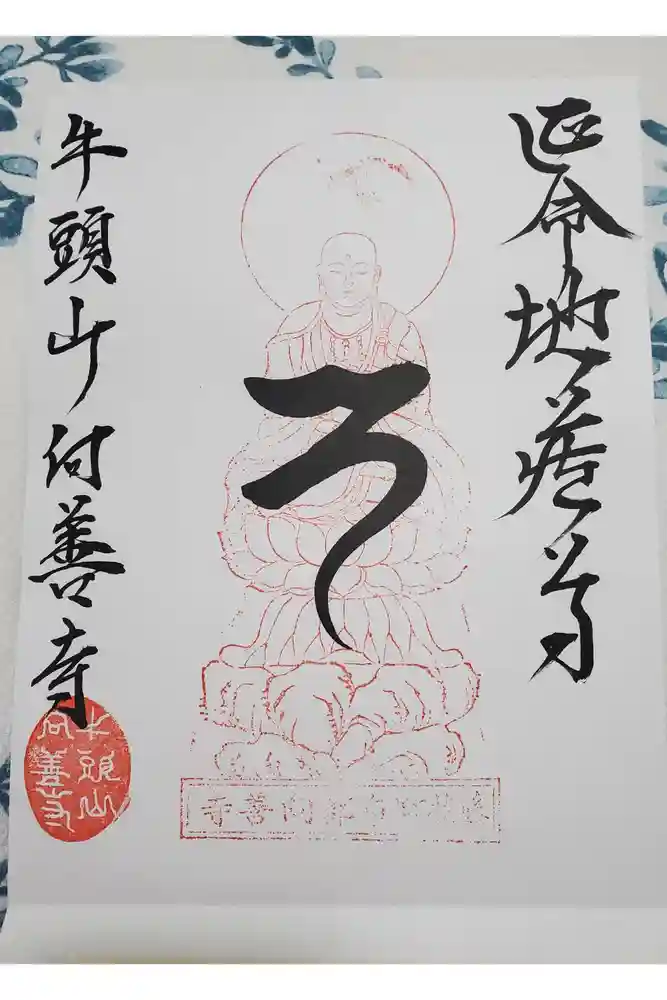 延命地蔵尊
牛頭山向善寺
牛頭山
向善寺